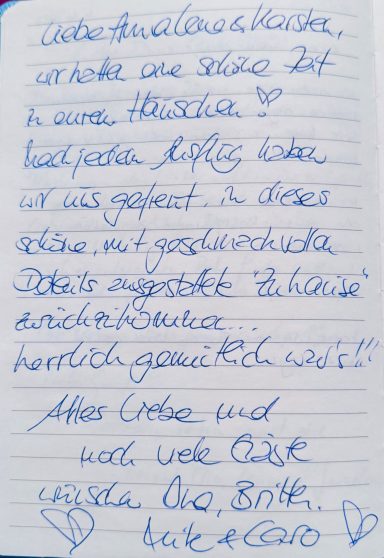 Liebe Annalena & Karsten,
wir hatten eine schöne Zeit
in eurem Häuschen!
Nach jedem Ausflug haben
wir uns gefreut, in dieses
schöne, mit geschmackvollen
Details ausgestattete "Zuhause"
zurückzukommen...
herrlich gemütlich war's!!!
Alles Liebe und
noch viele Gäste
wünschen Ana, Britta,
& Caro